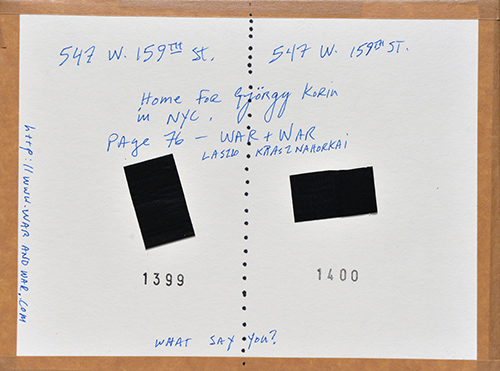 547 W. 159TH ST. 547 W. 159TH ST.
Home For György Korin
in NYC.
PAGE 76 – WAR + WAR
LASZLO KRASZNAHORKAI
1399 1400
WHAT SAY YOU?
http://www.WAR AND WAR.COM